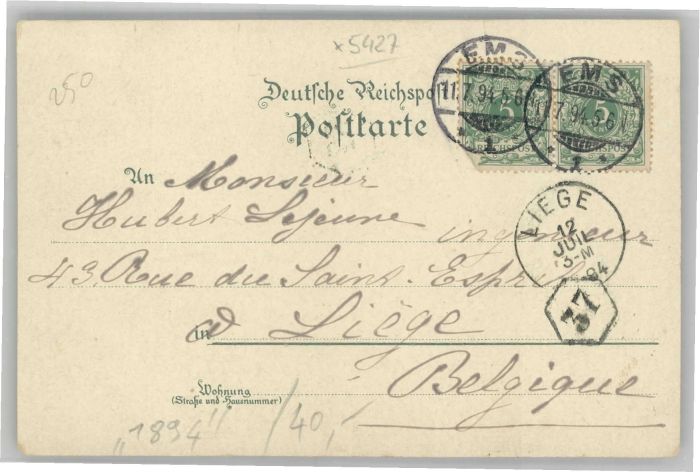 x5427
250
Deutsche Reichspo
Postkarte
EMS
11.7.94.5-6N
1
EMS
11.7.94.5-6N
1
5
REICHSPOST
5
REICHSPOST
An Monsieur
Hubert Lejeune ingénieur
43. Rue du Saint. Esprit
LIEGE
12
JUIL
3-M
94
37
in à Liège
Belgique
Wohnung
(Straße und Hausnummer)
"1894" /40,-